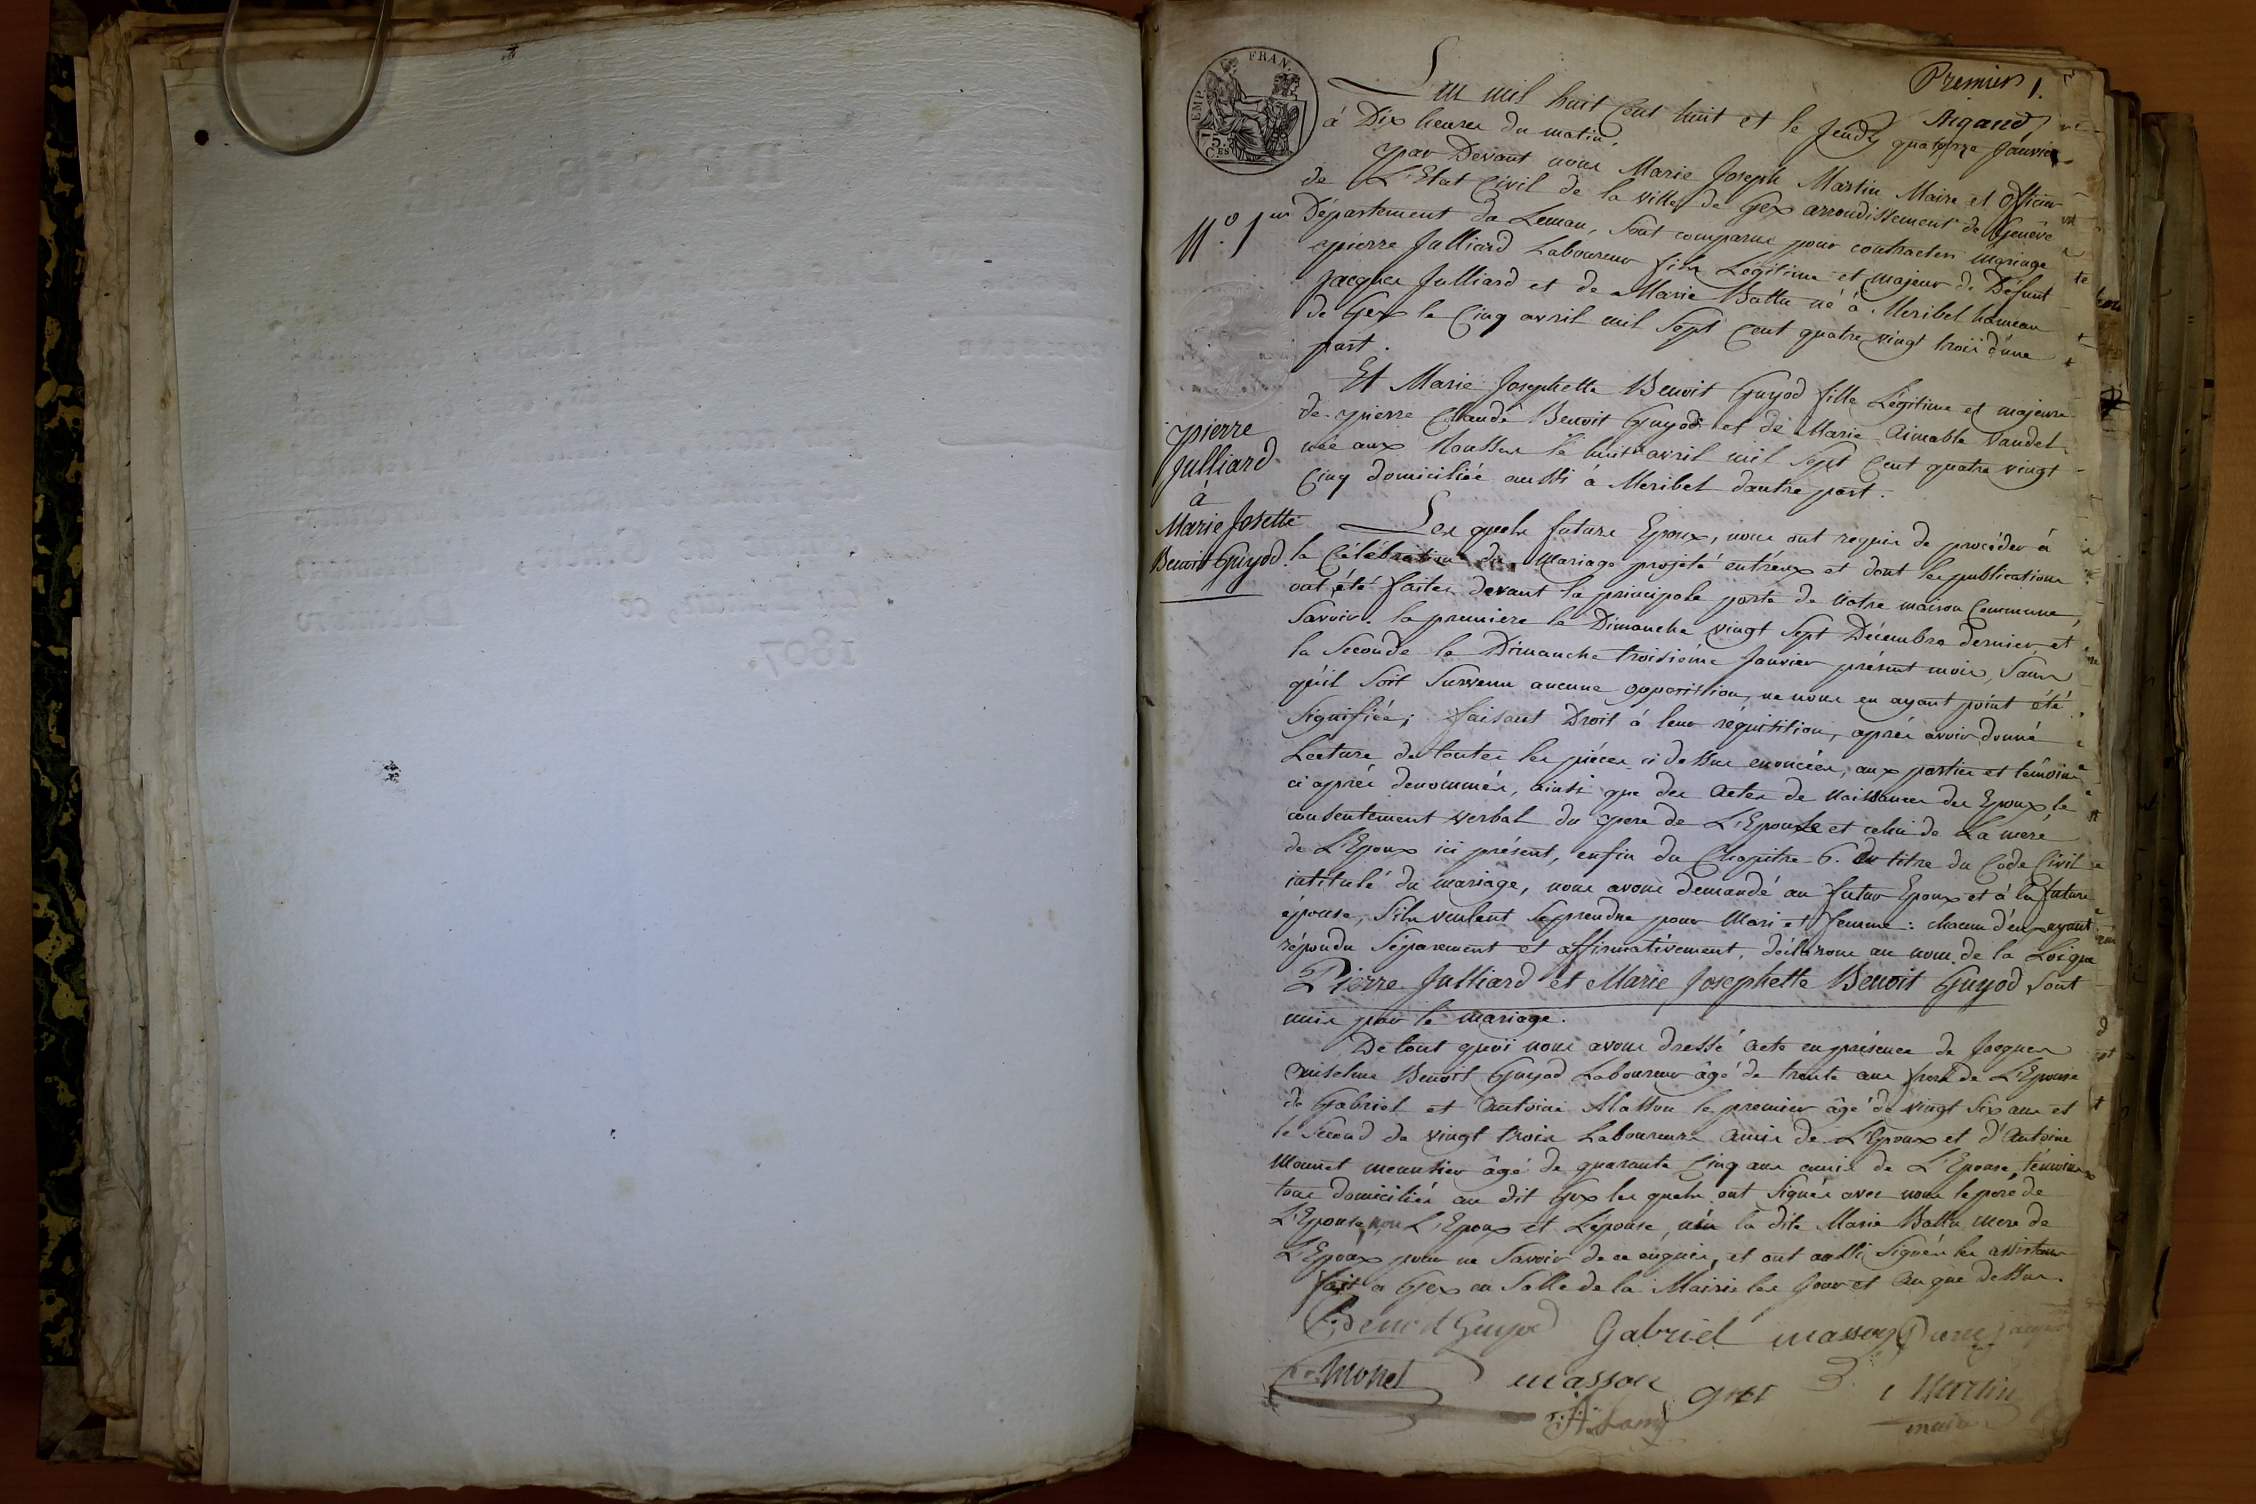 Premier 1.
Rigaud
EMP. FRAN.
75. CES
L'an mil huit Cent huit et le Jeudy quatorze Janvier
à Dix heures du matin,
par Devant nous Marie Joseph Martin Maire et officier
de L'Etat Civil de la ville de Gex arrondissement de Genève
N.º 1er
Département du Leman, sont comparus pour contracter mariage
pierre Julliard Laboureur fils Légitime et majeur de Défunt
Jacques Julliard et de Marie Battu né à Meribel hameau
de Gex le Cinq avril mil sept Cent quatre vingt trois d'une
part.
Et Marie Josephette Benoit Guyod fille Légitime et majeure
de pierre Claude Benoit Guyod et de Marie Aimable Vandel
née aux Mousses le huit avril mil sept Cent quatre vingt
Cinq domiciliée aussi à Meribel d'autre part.
pierre
Julliard
à
Marie Josette
Benoit Guyod.
Les quels futurs Epoux, nous ont requis de procéder à
la Célébration du Mariage projeté entr'eux et dont les publications
ont été faites devant la principale porte de Notre maison Commune,
Savoir, la première le Dimanche vingt Sept Décembre dernier, et
la Seconde le Dimanche troisième Janvier présent mois, Sans
qu'il soit Survenu aucune opposition, ne nous en ayant point été
Signifiée; faisant Droit à leur réquisition, après avoir donné
Lecture de toutes les pièces ci dessus enoncées, aux parties et témoins
ci après denommés, ainsi que des Actes de Naissances des Epoux le
consentement verbal du pere de L'Epouse et celui de La mere
de L'Epoux ici présent, enfin du Chapitre 6. du titre du Code Civil
intitulé du mariage, nous avons demandé au futur Epoux et à la future
épouse, S'ils veulent Se prendre pour Mari et femme: chacun d'eux ayant
répondu Séparement et affirmativement, déclarons au nom de la Loi que
Pierre Julliard et Marie Josephette Benoit Guyod Sont
unis par le mariage.
De tout quoi nous avons dressé acte en présence de Jacques
Anselme Benoit Guyod Laboureur âgé de trente ans frere de L'Epouse
de Gabriel et Antoine Masson le premier âgé de vingt Six ans et
le Second de vingt trois Laboureurs amis de L'Epoux et d'Antoine
Monnet meunier âgé de quarante Cinq ans amis de L'Epouse, témoins
tous domiciliés au dit Gex les quels ont Signés avec nous le pere de
L'Epouse, non L'Epoux et L'épouse, ni la dite Marie Battu mere de
L'Epoux pour ne Savoir de ce enquis, et ont aussi Signés les assistans
fait à Gex en Salle de la Mairie les Jour et An que dessus.
Benoit Guyod Gabriel masson
Monet masson Martin
maire
1807.